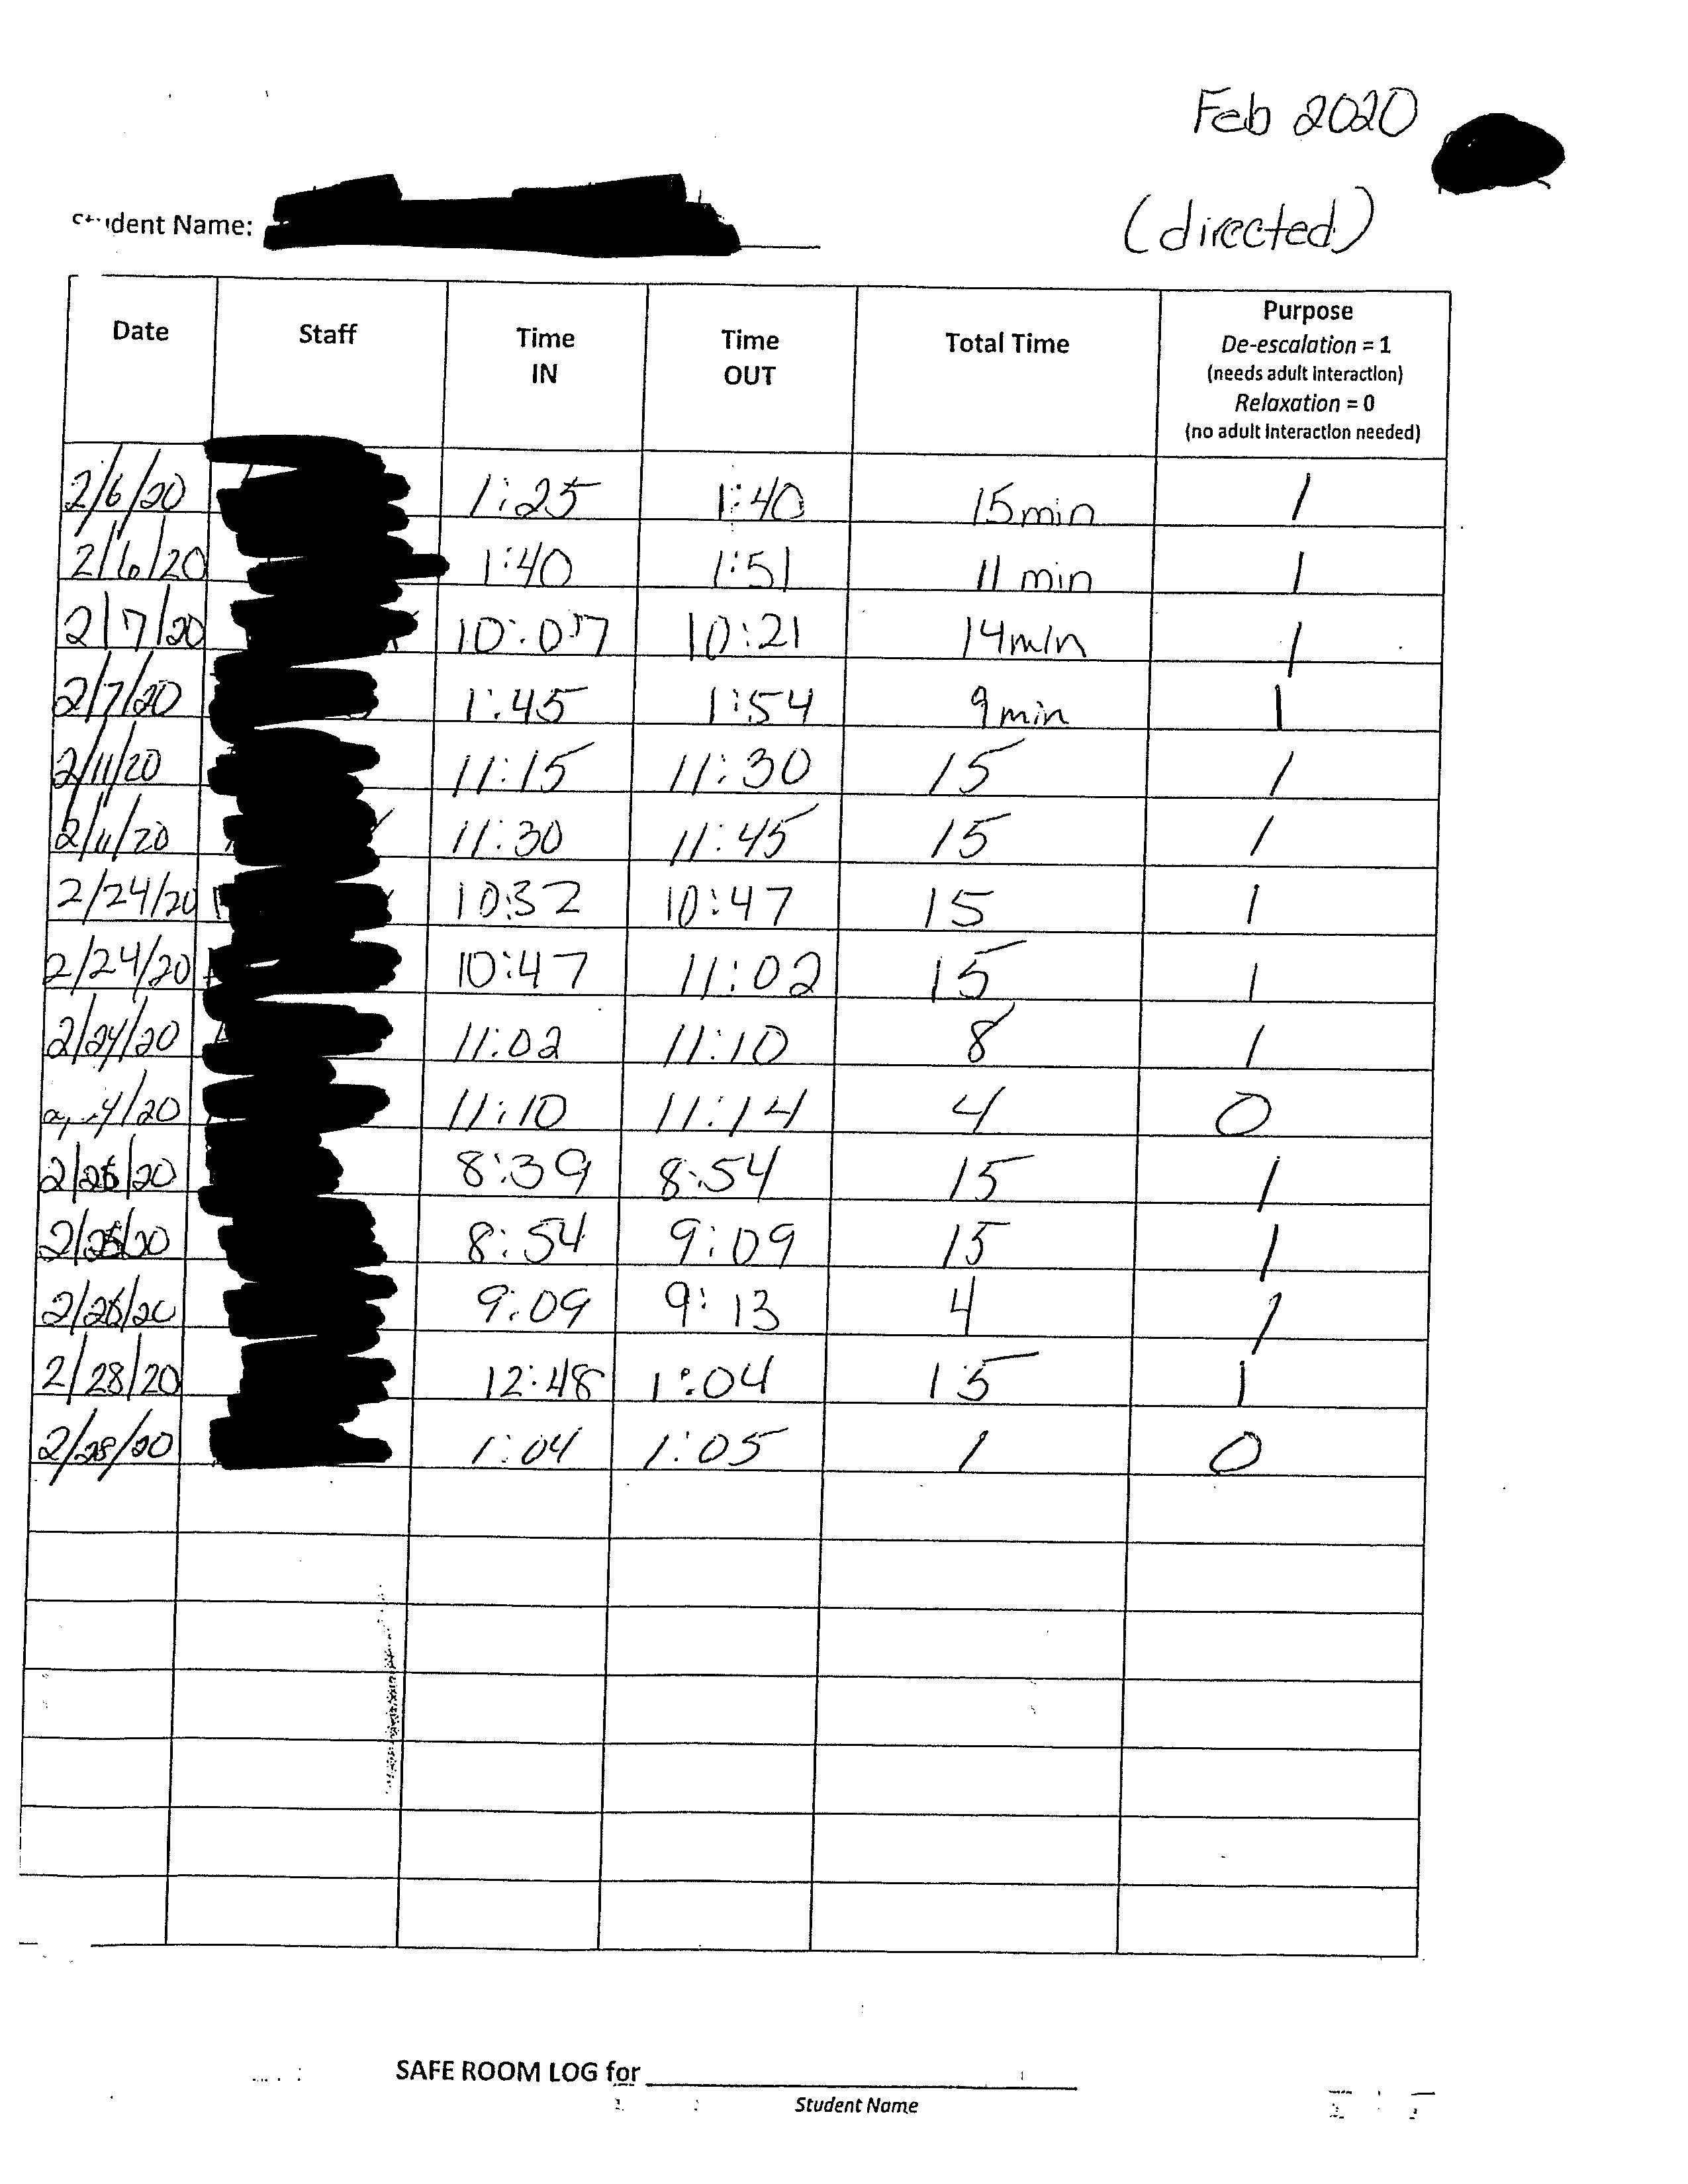 Feb 2020
Student Name:
(directed)
Date Staff Time IN Time OUT Total Time Purpose
De-escalation = 1
(needs adult interaction)
Relaxation = 0
(no adult interaction needed)
2/6/20 1:25 1:40 15min 1
2/6/20 1:40 1:51 11 min 1
2/7/20 10:07 10:21 14min 1
2/7/20 1:45 1:54 9min 1
2/11/20 11:15 11:30 15 1
2/11/20 11:30 11:45 15 1
2/24/20 10:32 10:47 15 1
2/24/20 10:47 11:02 15 1
2/24/20 11:02 11:10 8 1
11:10 11:14 4 0
8:39 8:54 15 1
8:54 9:09 15 1
9:09 9:13 4 1
2/28/20 12:48 1:04 15 1
2/28/20 1:04 1:05 1 0
SAFE ROOM LOG for
Student Name